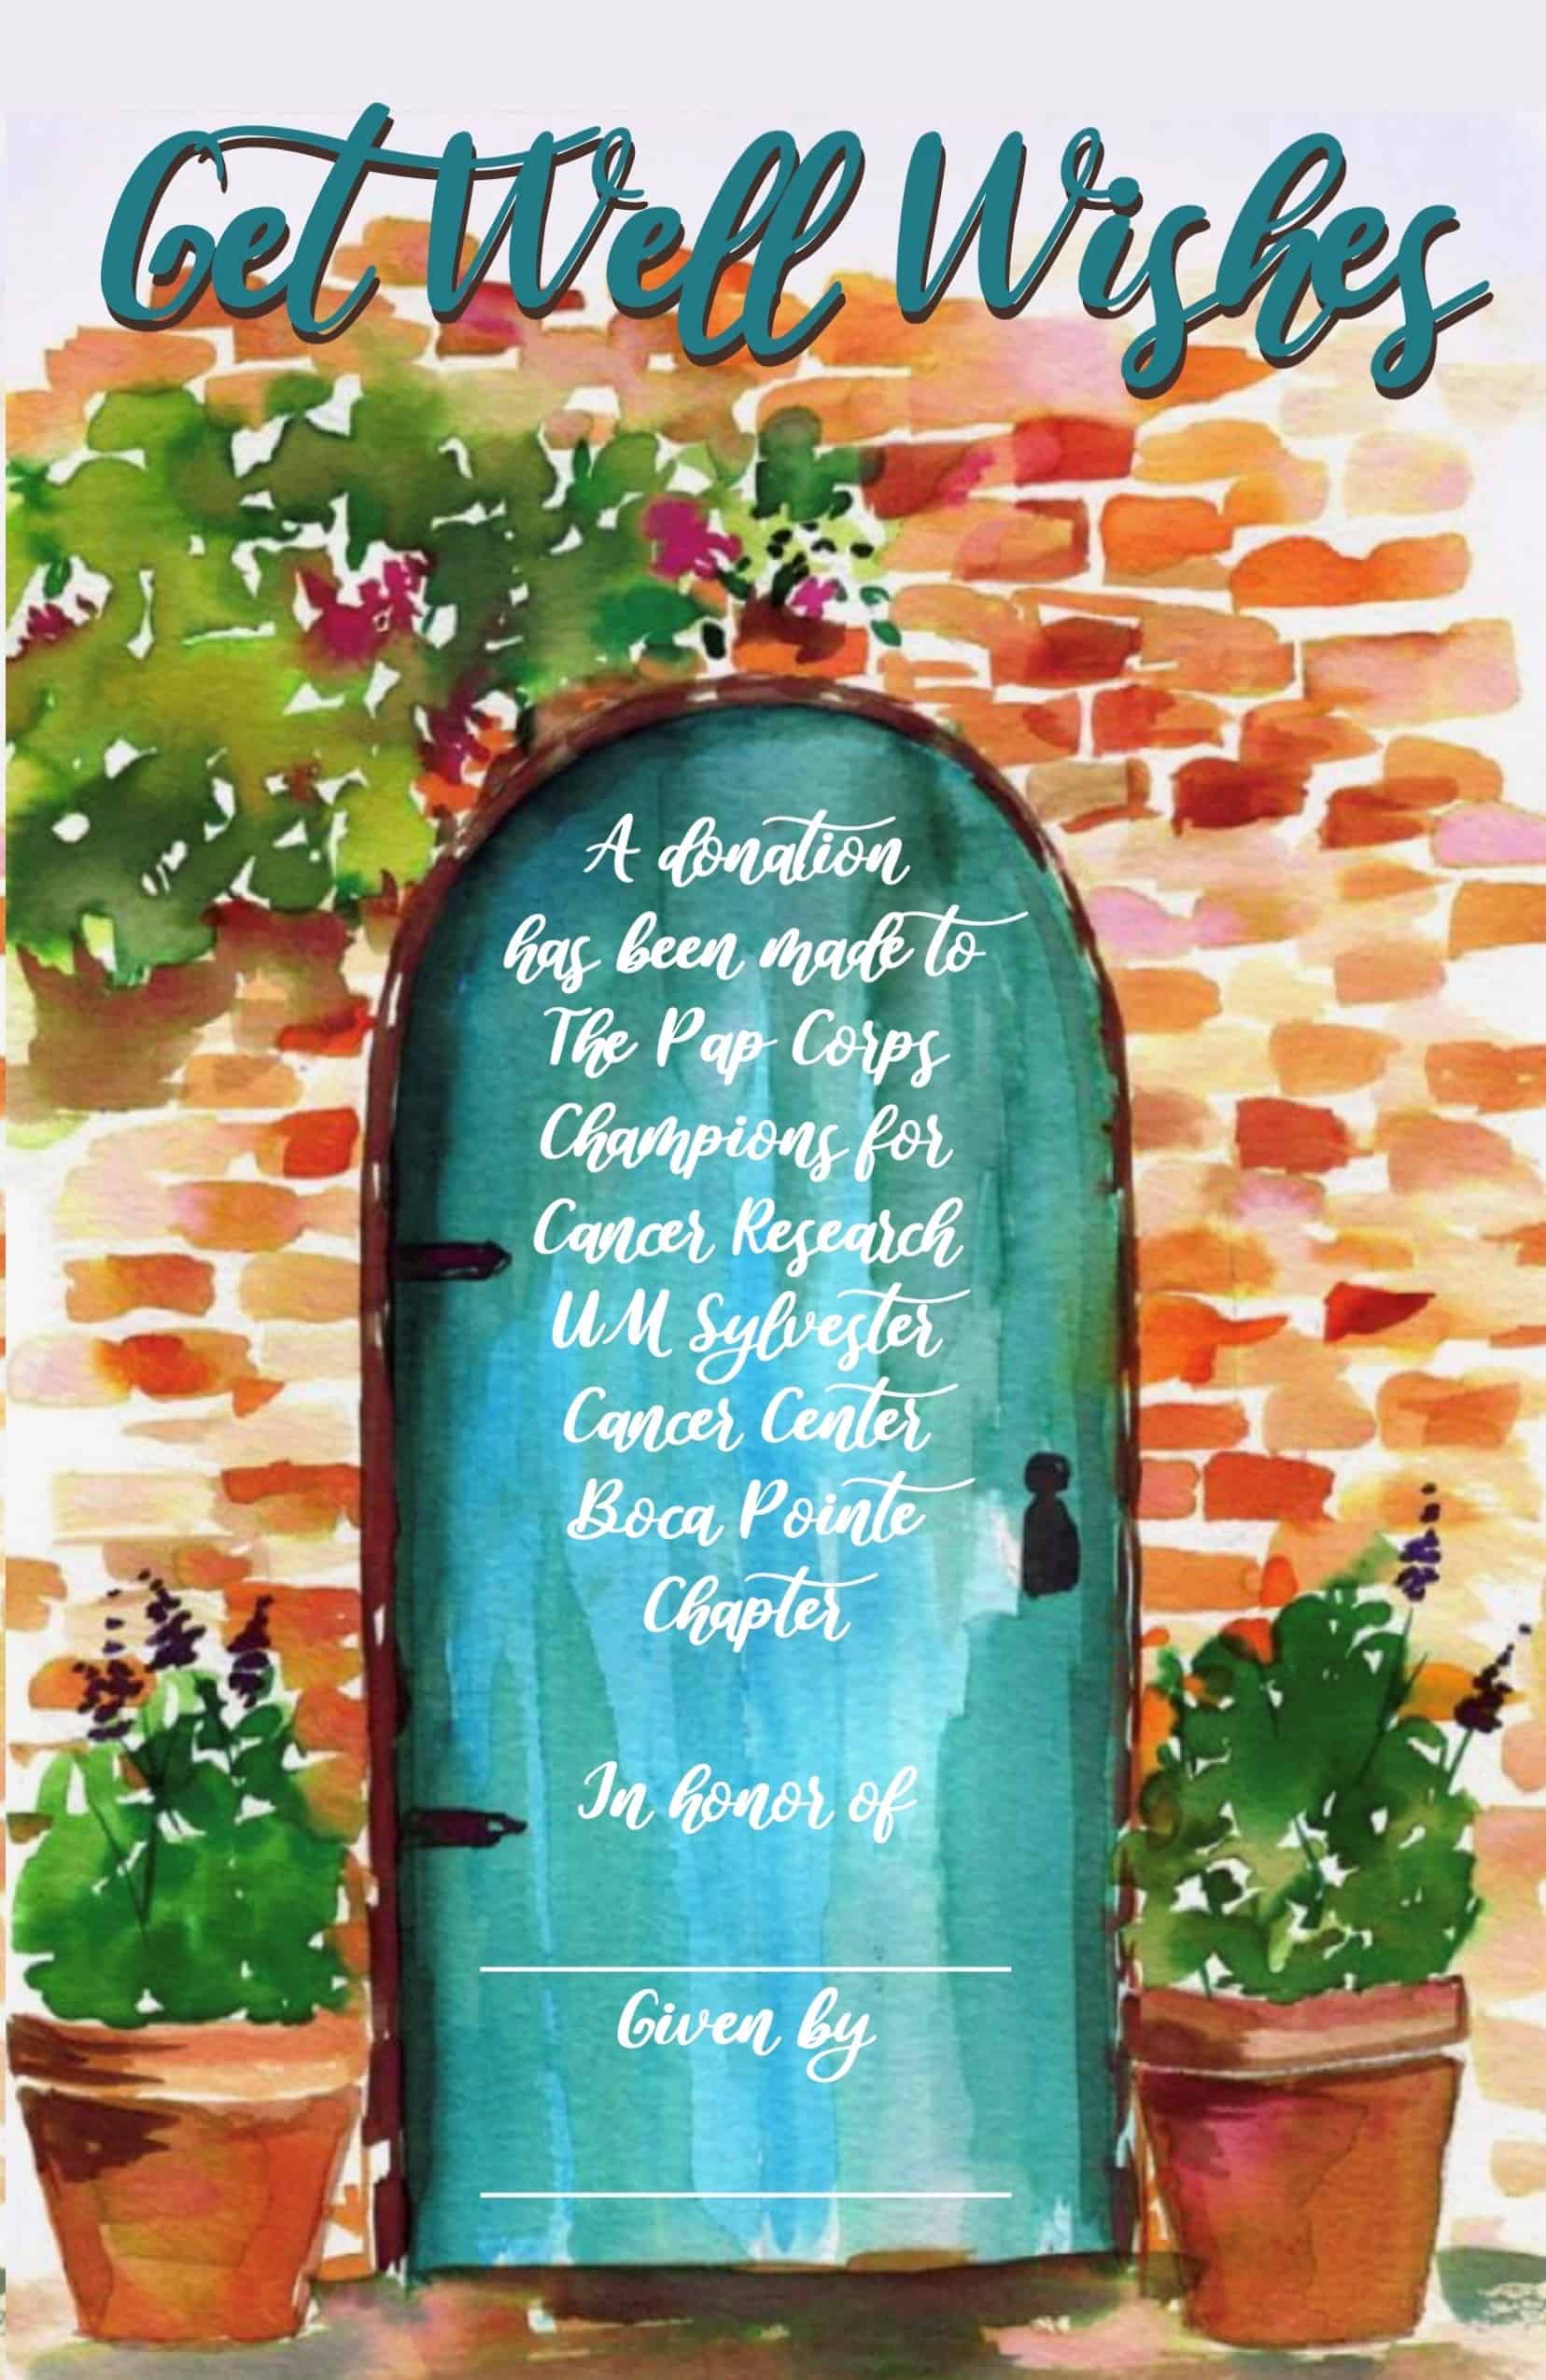 Get Well Wishes
A donation
has been made to
The Pap Corps
Champions for
Cancer Research
UM Sylvester
Cancer Center
Boca Pointe
Chapter
In honor of
Given by